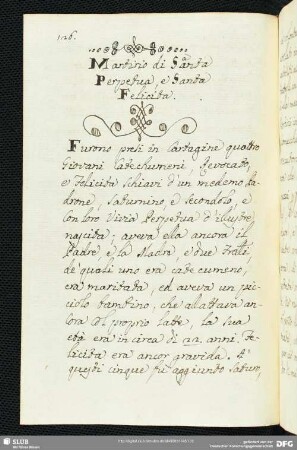 126.
Martirio di Santa
Perpetua, e Santa
Felicita.
Furono presi in Cartagine quattro
Giovani Catechumeni, Revocato,
e Felicita Schiavi d'un medemo Pa-
drone, Saturnino, e Secondolo, e
con loro Vivia Perpetua d'illustre
nascita; aveva ella ancora il
Padre e la Madre, e due fratelli
de quali uno era catecumeno,
era maritata, ed aveva un pic-
ciolo bambino, che allattava an-
cora del proprio latte, la sua
età era in circa di 22. anni. Fe-
licita era ancor gravida. A'
questi cinque fu aggiunto Satur,
SLUB
Wir führen Wissen.
gefördert von der
DFG